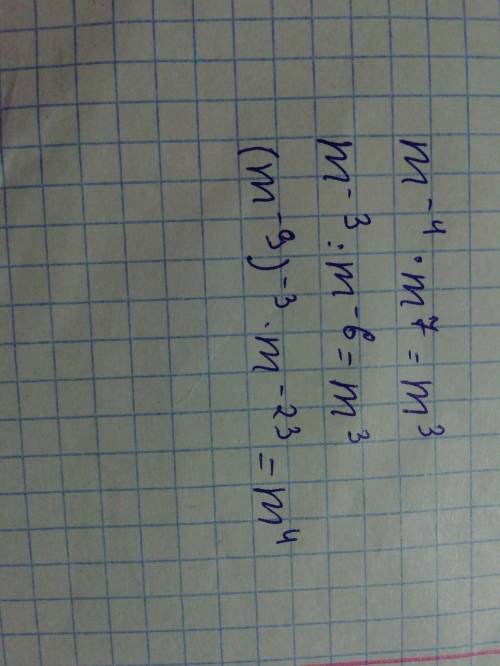 m⁻⁴ · m⁷ = m³
m⁻³ : m⁻⁶ = m³
(m⁻⁹)⁻³ · m⁻²³ = m⁴